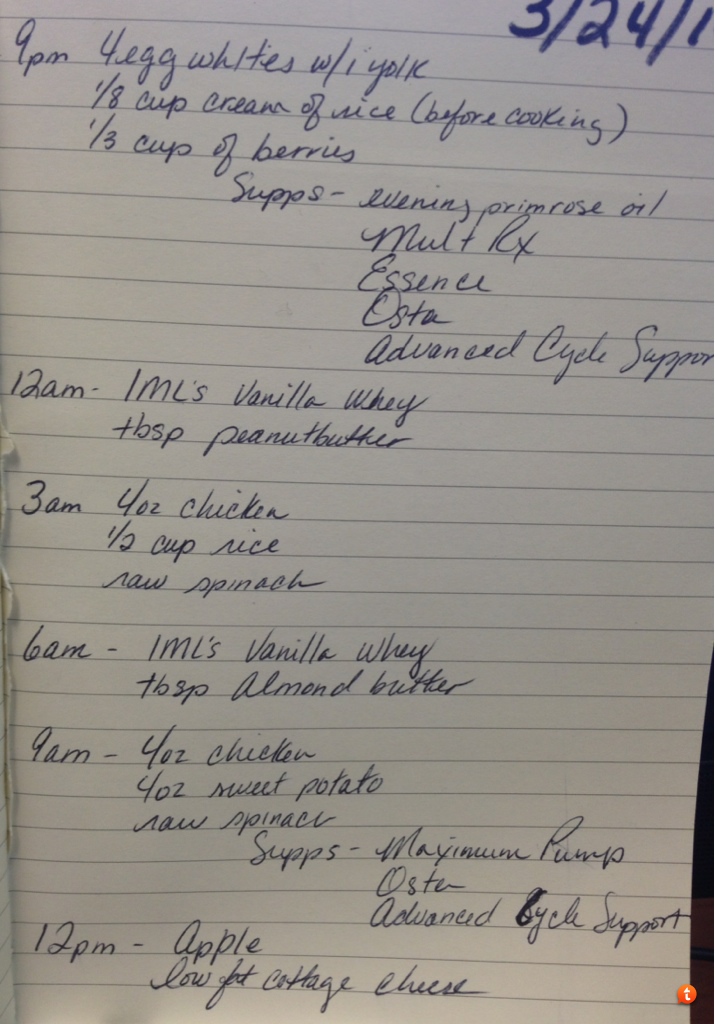 3/24/1
9pm 4 egg whites w/1 yolk
1/8 cup cream of rice (before cooking)
1/3 cup of berries
Supps - evening primrose oil
Mult Rx
Essence
Osta
Advanced Cycle Suppor
12am - IML's Vanilla Whey
tbsp peanutbutter
3am 4oz chicken
1/2 cup rice
raw spinach
6am - IML's Vanilla Whey
tbsp Almond butter
9am - 4oz chicken
4oz sweet potato
raw spinach
Supps - Maximum Pump
Osta
Advanced Cycle Support
12pm - Apple
low fat cottage cheese
t